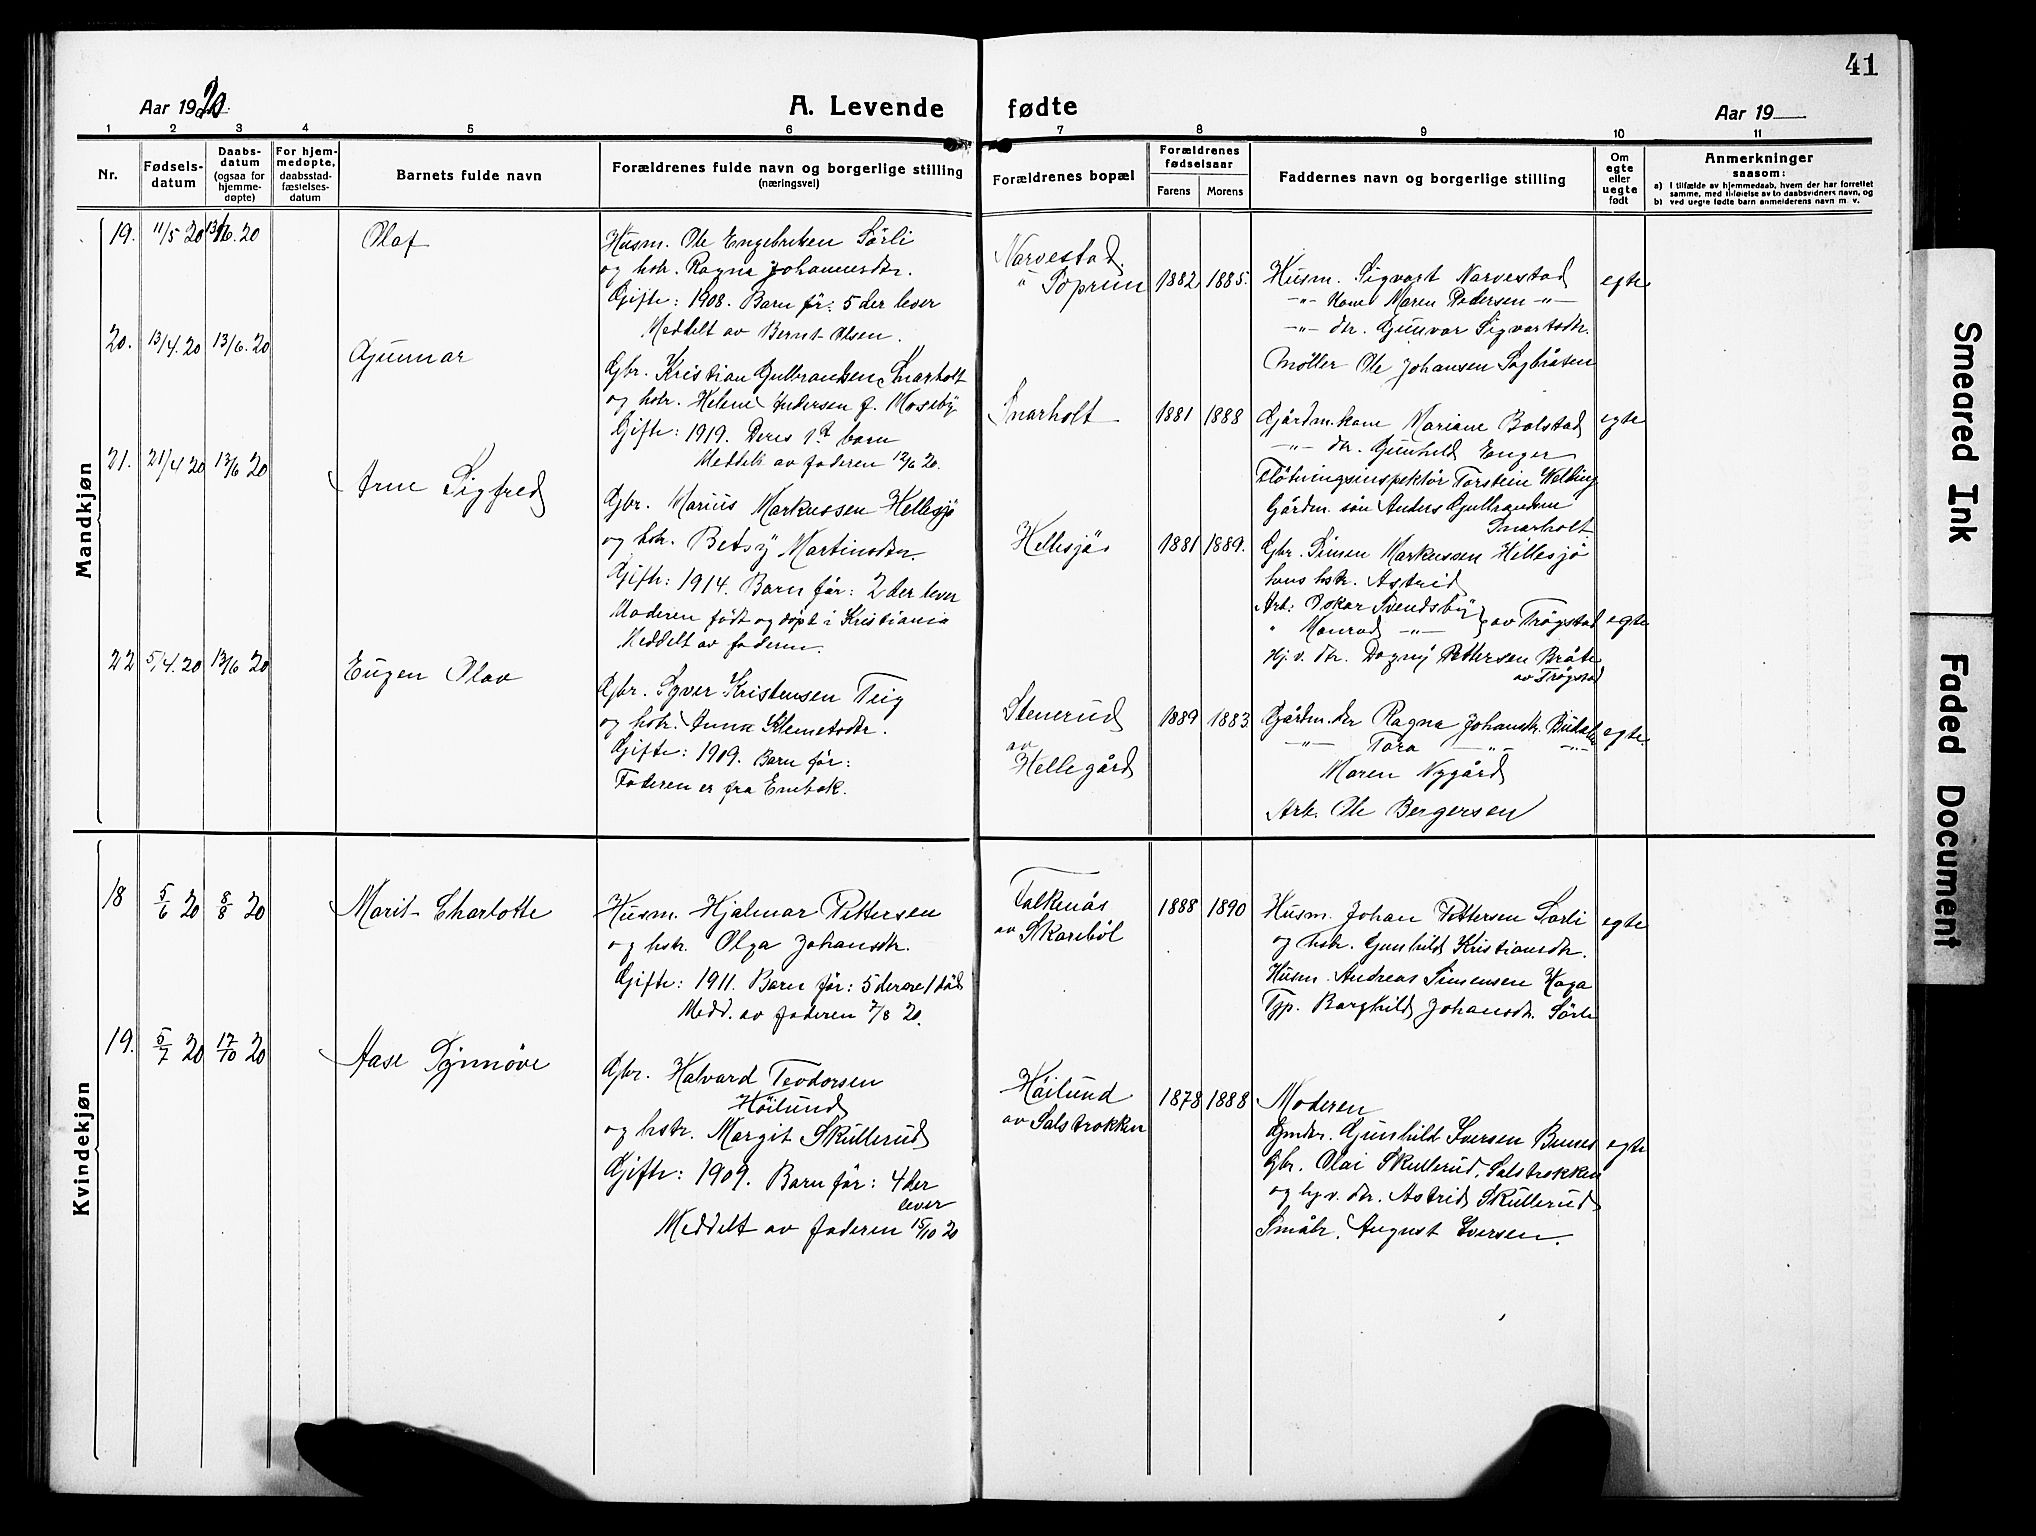 41
Aar 1920
A. Levende fødte
Aar 19
1 2 3 4 5 6 7 8 9 10 11
Nr.
Fødsels-
datum
Daabs-
datum
(ogsaa for
hjemme-
døpte)
For hjem-
medøpte,
daabsstad-
fæstelses-
datum
Barnets fulde navn
Forældrenes fulde navn og borgerlige stilling
(næringsvei)
Forældrenes bopæl
Forældrenes
fødselsaar
Farens Morens
Faddernes navn og borgerlige stilling
Om
egte
eller
uegte
født
Anmerkninger
saasom:
a) i tilfælde av hjemmedaab, hvem der har forrettet
samme, med tilføielse av to daabsvidners navn, og
b) ved uegte fødte barn anmelderens navn m. v.
Mandkjøn
19. 11/5 20 13/6. 20
Olaf
Husm. Ole Engebretsen Sörli
og hstr. Ragna Johannesdtr.
Gifte: 1908. Barn för: 5 der lever
Meddelt av Bernt Olsen.
Narvestad
" Toprum
1882 1885.
Husm. Sigvart Narvestad
-"- Kone Maren Pedersen -"-
-"- dtr. Gunvor Sigvartsdtr.
Möller Ole Johansen Sagbråten
egte
20. 13/4. 20 13/6. 20
Gunnar
Gbr. Kristian Gulbrandsen Snarholt
og hstr. Helene Andersen f. Moseby
Gifte: 1919. Deres 1st barn
Meddelt av faderen 12/6 20.
Snarholt
1881 1888
Gårdm. kone Mariane Bolstad
-"- dtr. Gunhild Enger
Flötningsinspektör Torstein Welding
Gårdm. sön Anders Gulbrandsen
Snarholt
egte
21. 21/4 20 13/6 20
Arne Sigfred
Gbr. Marius Markussen Hellesjö
og hstr. Betsy Martinsdtr.
Gifte: 1914. Barn för: 2 der lever
Moderen født og døpt i Kristiania
Meddelt av faderen.
Hellesjö
1881 1889.
Gbr. Simen Markussen Hellesjö
hans hstr. Astrid
Arb. Oskar Svendsby
" Monrad -"- av Trøgstad
Hj. v. dtr. Dagny Pettersen Bråte
av Trøgstad
egte
22 5/4. 20 13/6 20
Eugen Olav
Gbr. Syver Kristensen Teig
og hstr. Anna Klemetsdtr.
Gifte: 1909. Barn för:
Faderen er fra Enebak.
Stenerud
av
Hellegård
1889 1883
Gårdm. dtr Ragna Johansdtr.
-"- Tora -"- -"-
Maren Nygård
Arb. Ole Bergersen
egte.
Kvindekjøn
18 5/6 20 8/8 20
Marit Charlotte
Husm. Hjalmar Pettersen
og hstr. Olga Johansdtr.
Gifte: 1911. Barn för: 5 derav 1 död
Medd. av faderen 7/8 20.
Falkenås
av Skariböl
1888 1890
Husm. Johan Pettersen Sörli
og hstr. Gunhild Kristiansdtr.
Husm. Andreas Simensen Haga
Tjp. Borghild Johansdtr. Sörli
egte
19. 5/7 20 17/10 20
Aase Synnöve
Gbr. Halvard Teodorsen
Höilund
og hstr. Margit Skullerud
Gifte: 1909. Barn för: 4 der
lever
Meddelt av faderen 15/10 20
Höilund
av Salstrokken
1878 1888
Moderen
Gmdr. Gunhild Iversen Bunes
Gbr. Olai Skullerud, Salstrokken
og hj. v. dtr. Astrid Skullerud
Småbr. August Iversen.
egte
Smeared Ink
Faded Document